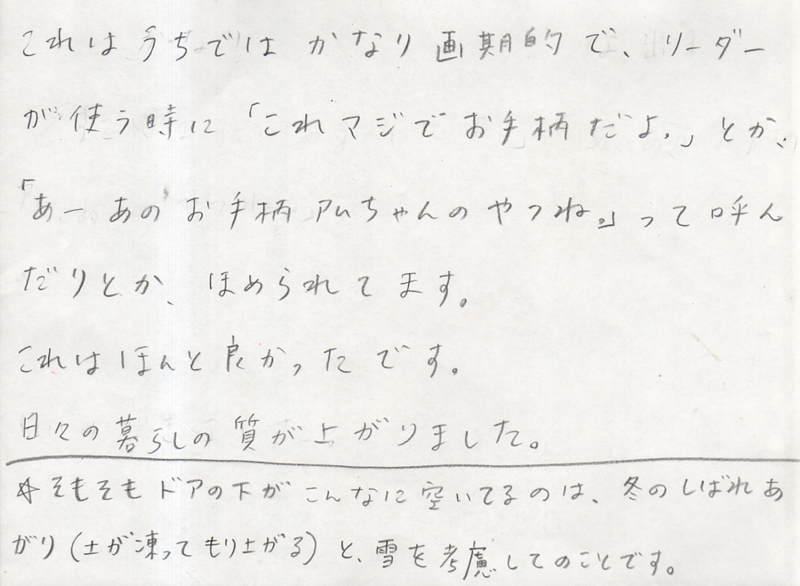 これはうちでは かなり 画期的で、リーダー
が使う時に「これマジでお手柄だよ。」とか、
「あーあのお手柄アムちゃんのやつね。」って呼ん
だりとか、ほめられてます。
これはほんと良かったです。
日々の暮らしの質が上がりました。
☆そもそもドアの下がこんなに空いてるのは、冬のしばれあ
がり(土が凍ってもり上がる)と、雪を考慮してのことです。